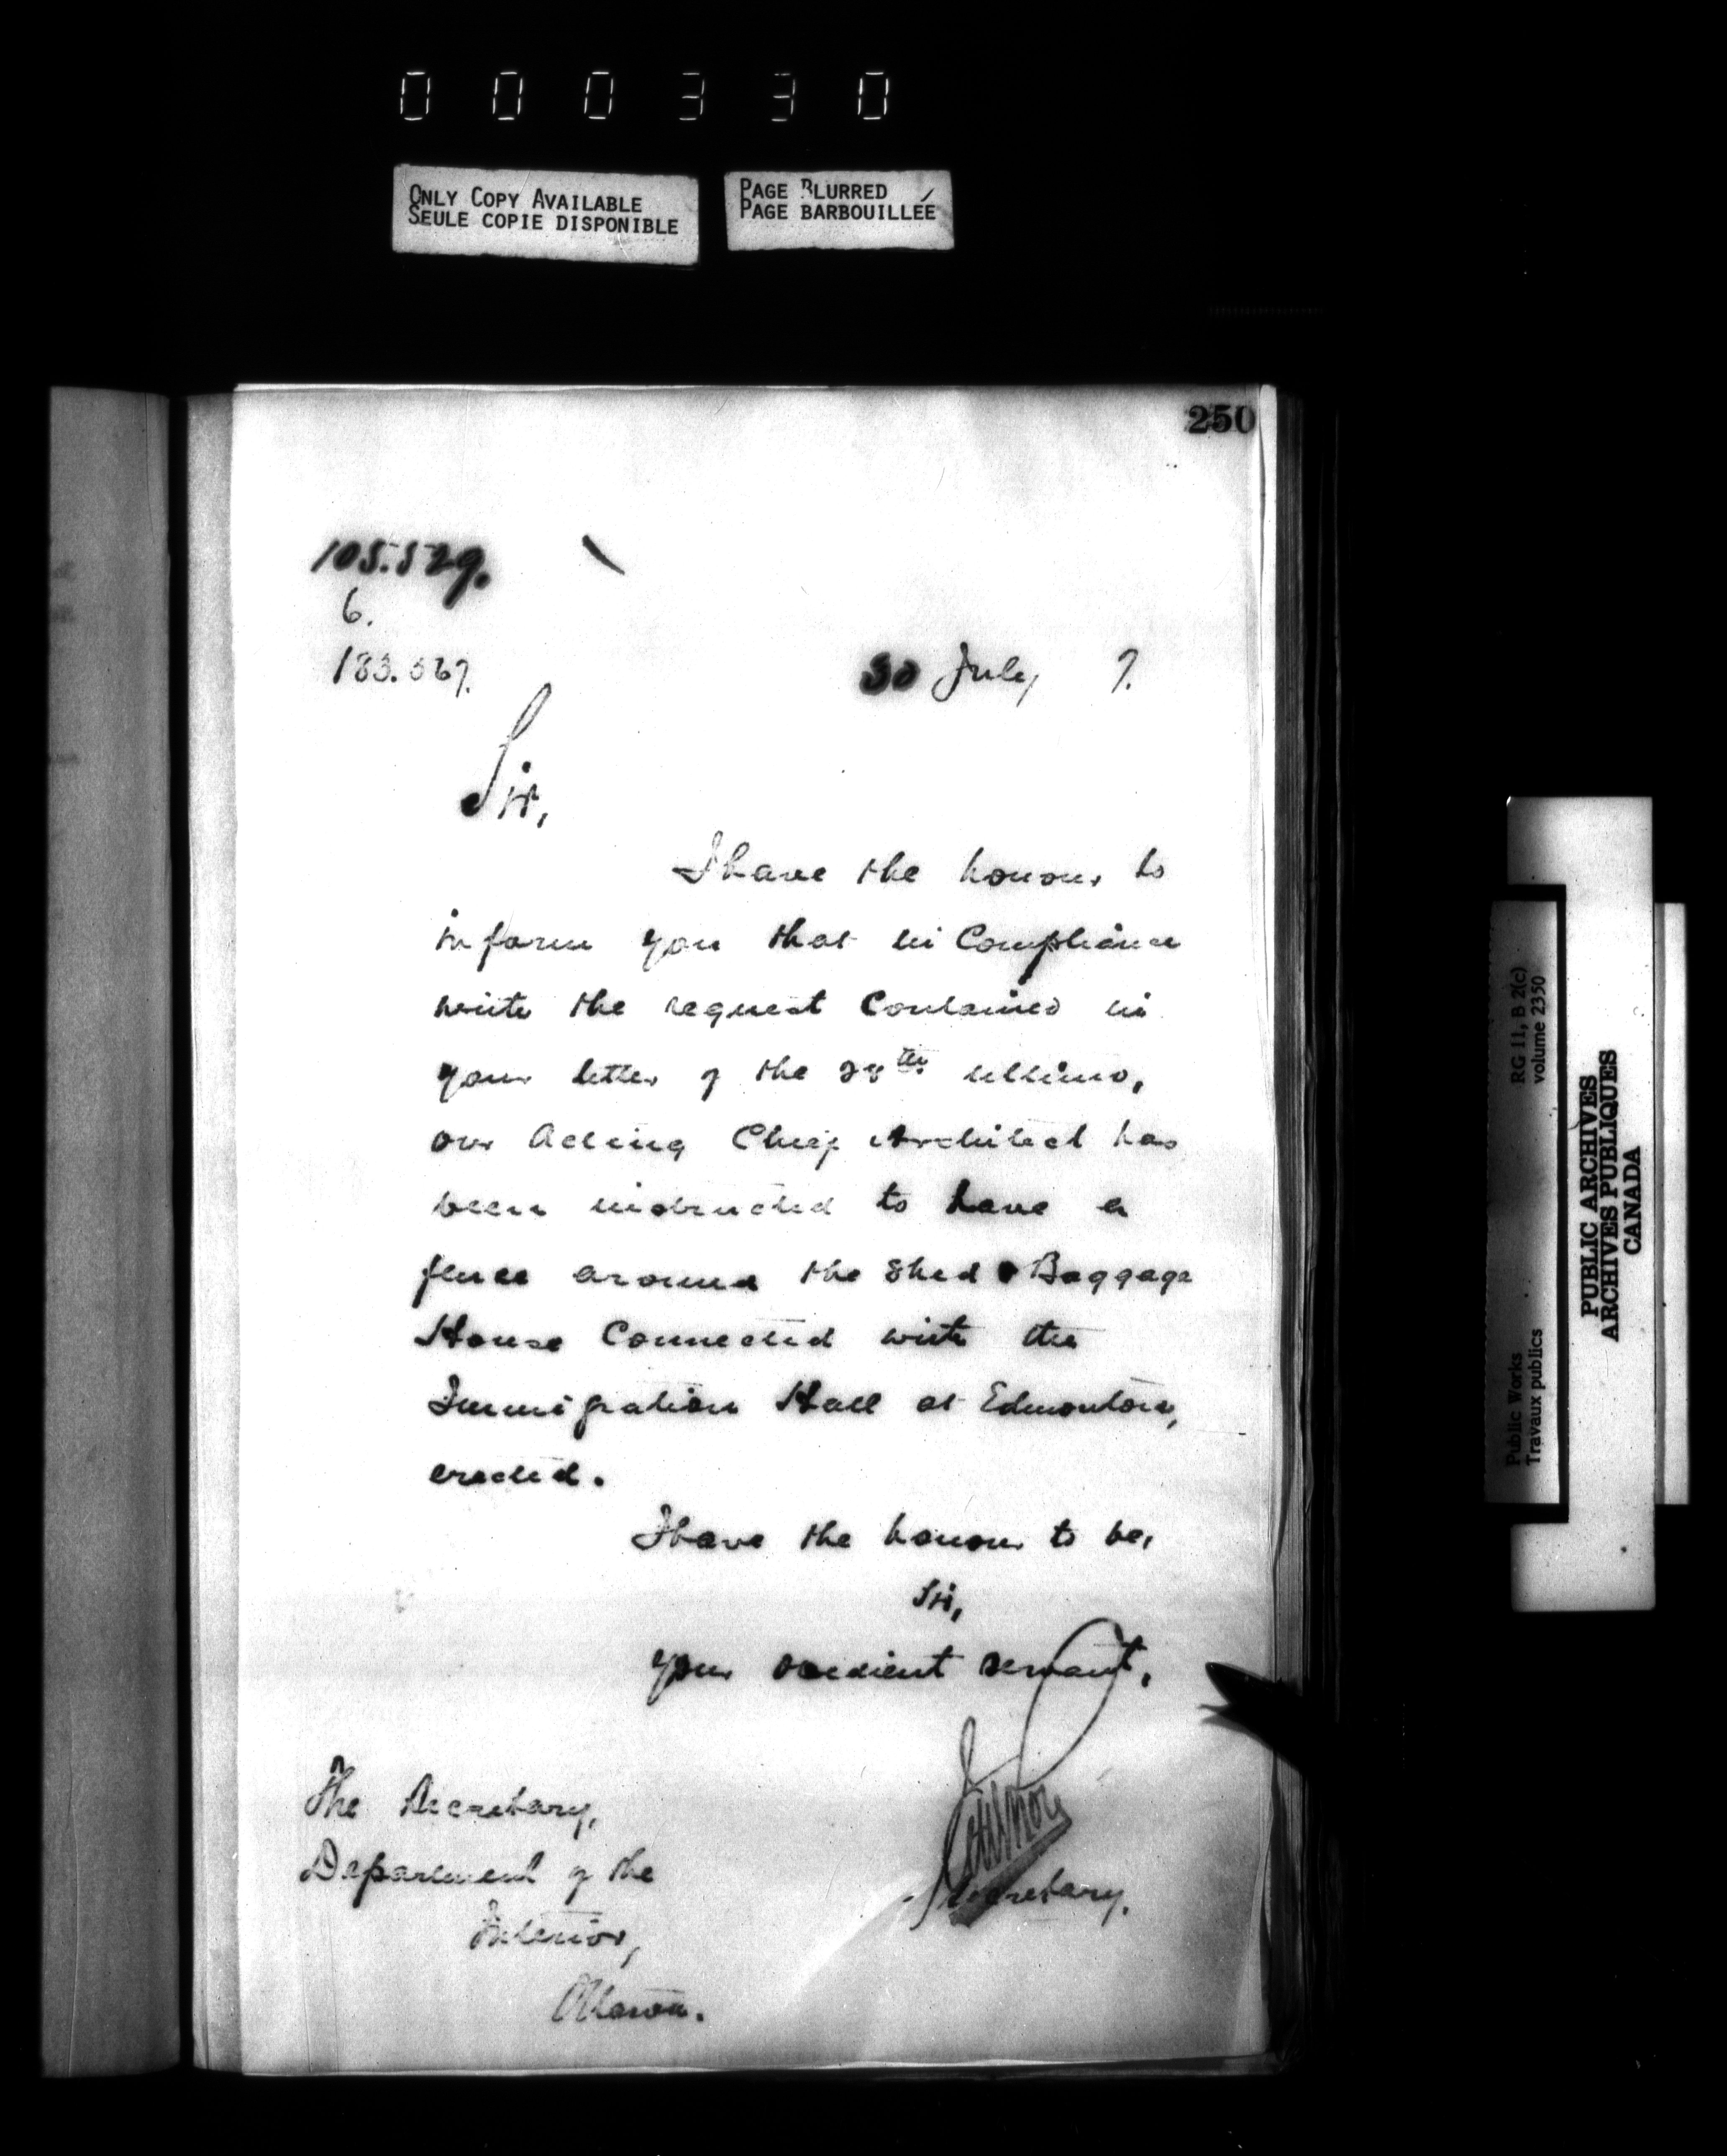 000330
ONLY COPY AVAILABLE
SEULE COPIE DISPONIBLE
PAGE BLURRED
PAGE BARBOUILLÉE
250
105.529.
6.
183.367.
30 July 7.
Sir,
I have the honour to
inform you that in Compliance
with the request Contained in
your letter of the 28th ultimo,
our Acting Chief Architect has
been instructed to have a
fence around the Shed & Baggage
House Connected with the
Immigration Hall at Edmonton,
erected.
I have the honour to be,
Sir,
your obedient servant,
Secretary.
The Secretary,
Department of the
Interior,
Ottawa.
RG 11, B 2(c)
volume 2350
Public Works
Travaux publics
PUBLIC ARCHIVES
ARCHIVES PUBLIQUES
CANADA